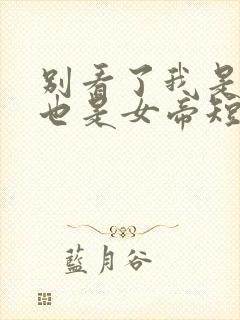 别看了我是
也是女帝短
藍月谷